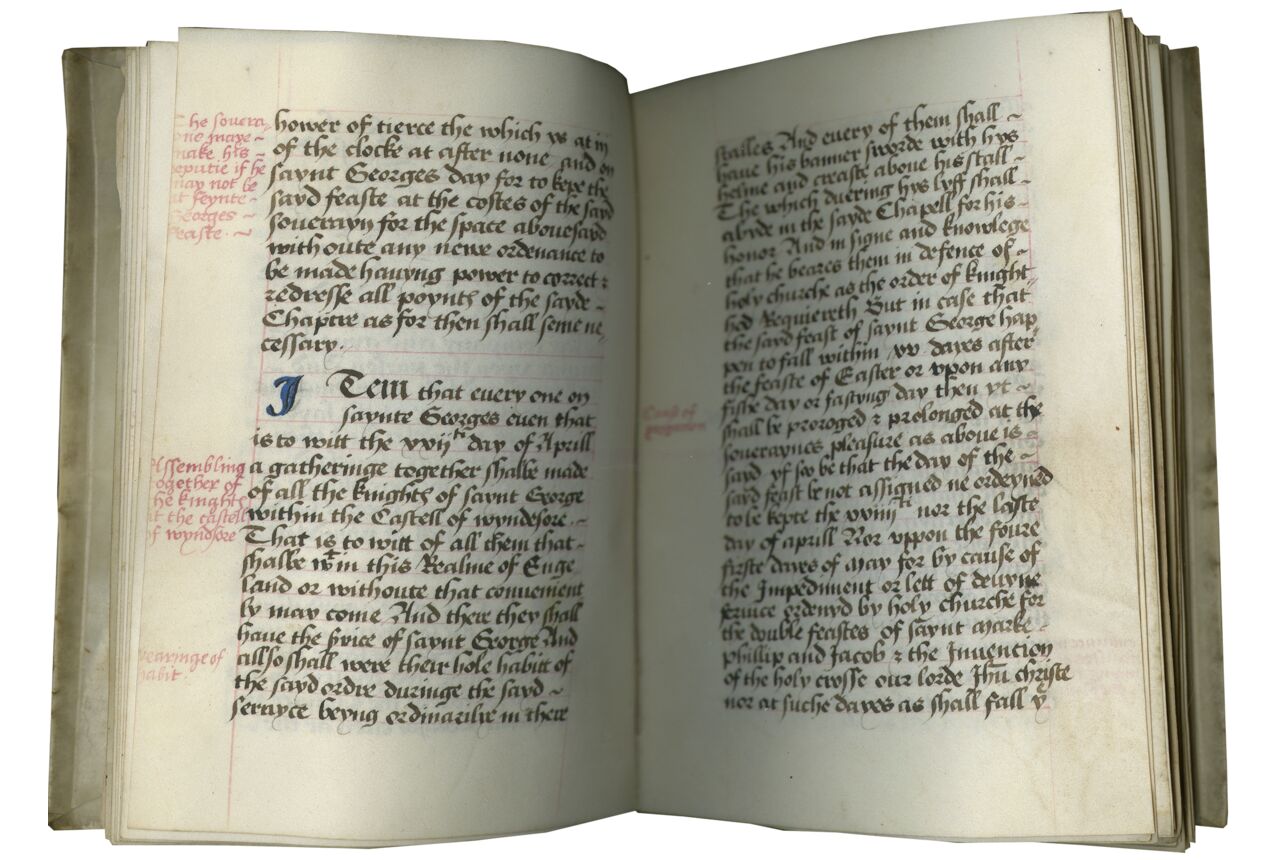 he sovera
ne maye ~
make his ~
eputie if he
may not be
at seynte
Georges ~
feaste . ~
hower of tierce the which ys at iij
of the clocke at after none and on
saynt Georges day for to kepe the
sayd feaste at the costes of the sayd
soverayn for the space abovesayd
with oute any newe ordenance to
be made havyng power to correct &
redresse all poyntes of the sayde ~
Chaptre as for then shall seme ne
cessary .
ITem that every one on
saynte Georges even that
is to witt the xxij day of Aprill
a gatheringe together shalbe made
of all the knightes of saynt George
within the Castell of wyndesore .~
That is to witt of all them that ~
shalbe wt in this Realme of Enge
land or withoute that convenient
ly may come And there they shall
have the svice of saynt George And
allso shall were their hole habitt of
the sayd ordre duringe the sayd ~
serayce beyng ordinarilye in there
Assembling
together of
he knightes
at the castell
of wyndsore
wearinge of
habit .
stalles And every of them shall ~
have his banner sworde with hys
helme and creaste above his stall ~
The which duering hys lyff shall ~
abyde in the sayde Chapell for his ~
honor And in signe and knowlege
that he beares them in defence of ~
holy churche as the order of knight
hod Requiereth But in case that
the sayd feast of saynt George hap
pen to fall within xv dayes after
the feaste of Easter or vpon any
fishe day or fastyng day then yt ~
shall be proroged & prolonged at the
soveraynes pleasure as above is ~
sayd yf so be that the day of the ~
sayd feast be not assigned ne ordeyned
to be kepte the xxiiijti nor the laste
day of aprill Nor vppon the foure
firste dayes of may for by cause of
the Impediment or lett of devyne
service ordenyd by holy churche for
the double feastes of saynt marke ~
phillip and Jacob & the Invention
of the holy crosse our lorde Jhu christe
nor at suche dayes as shall fall yn